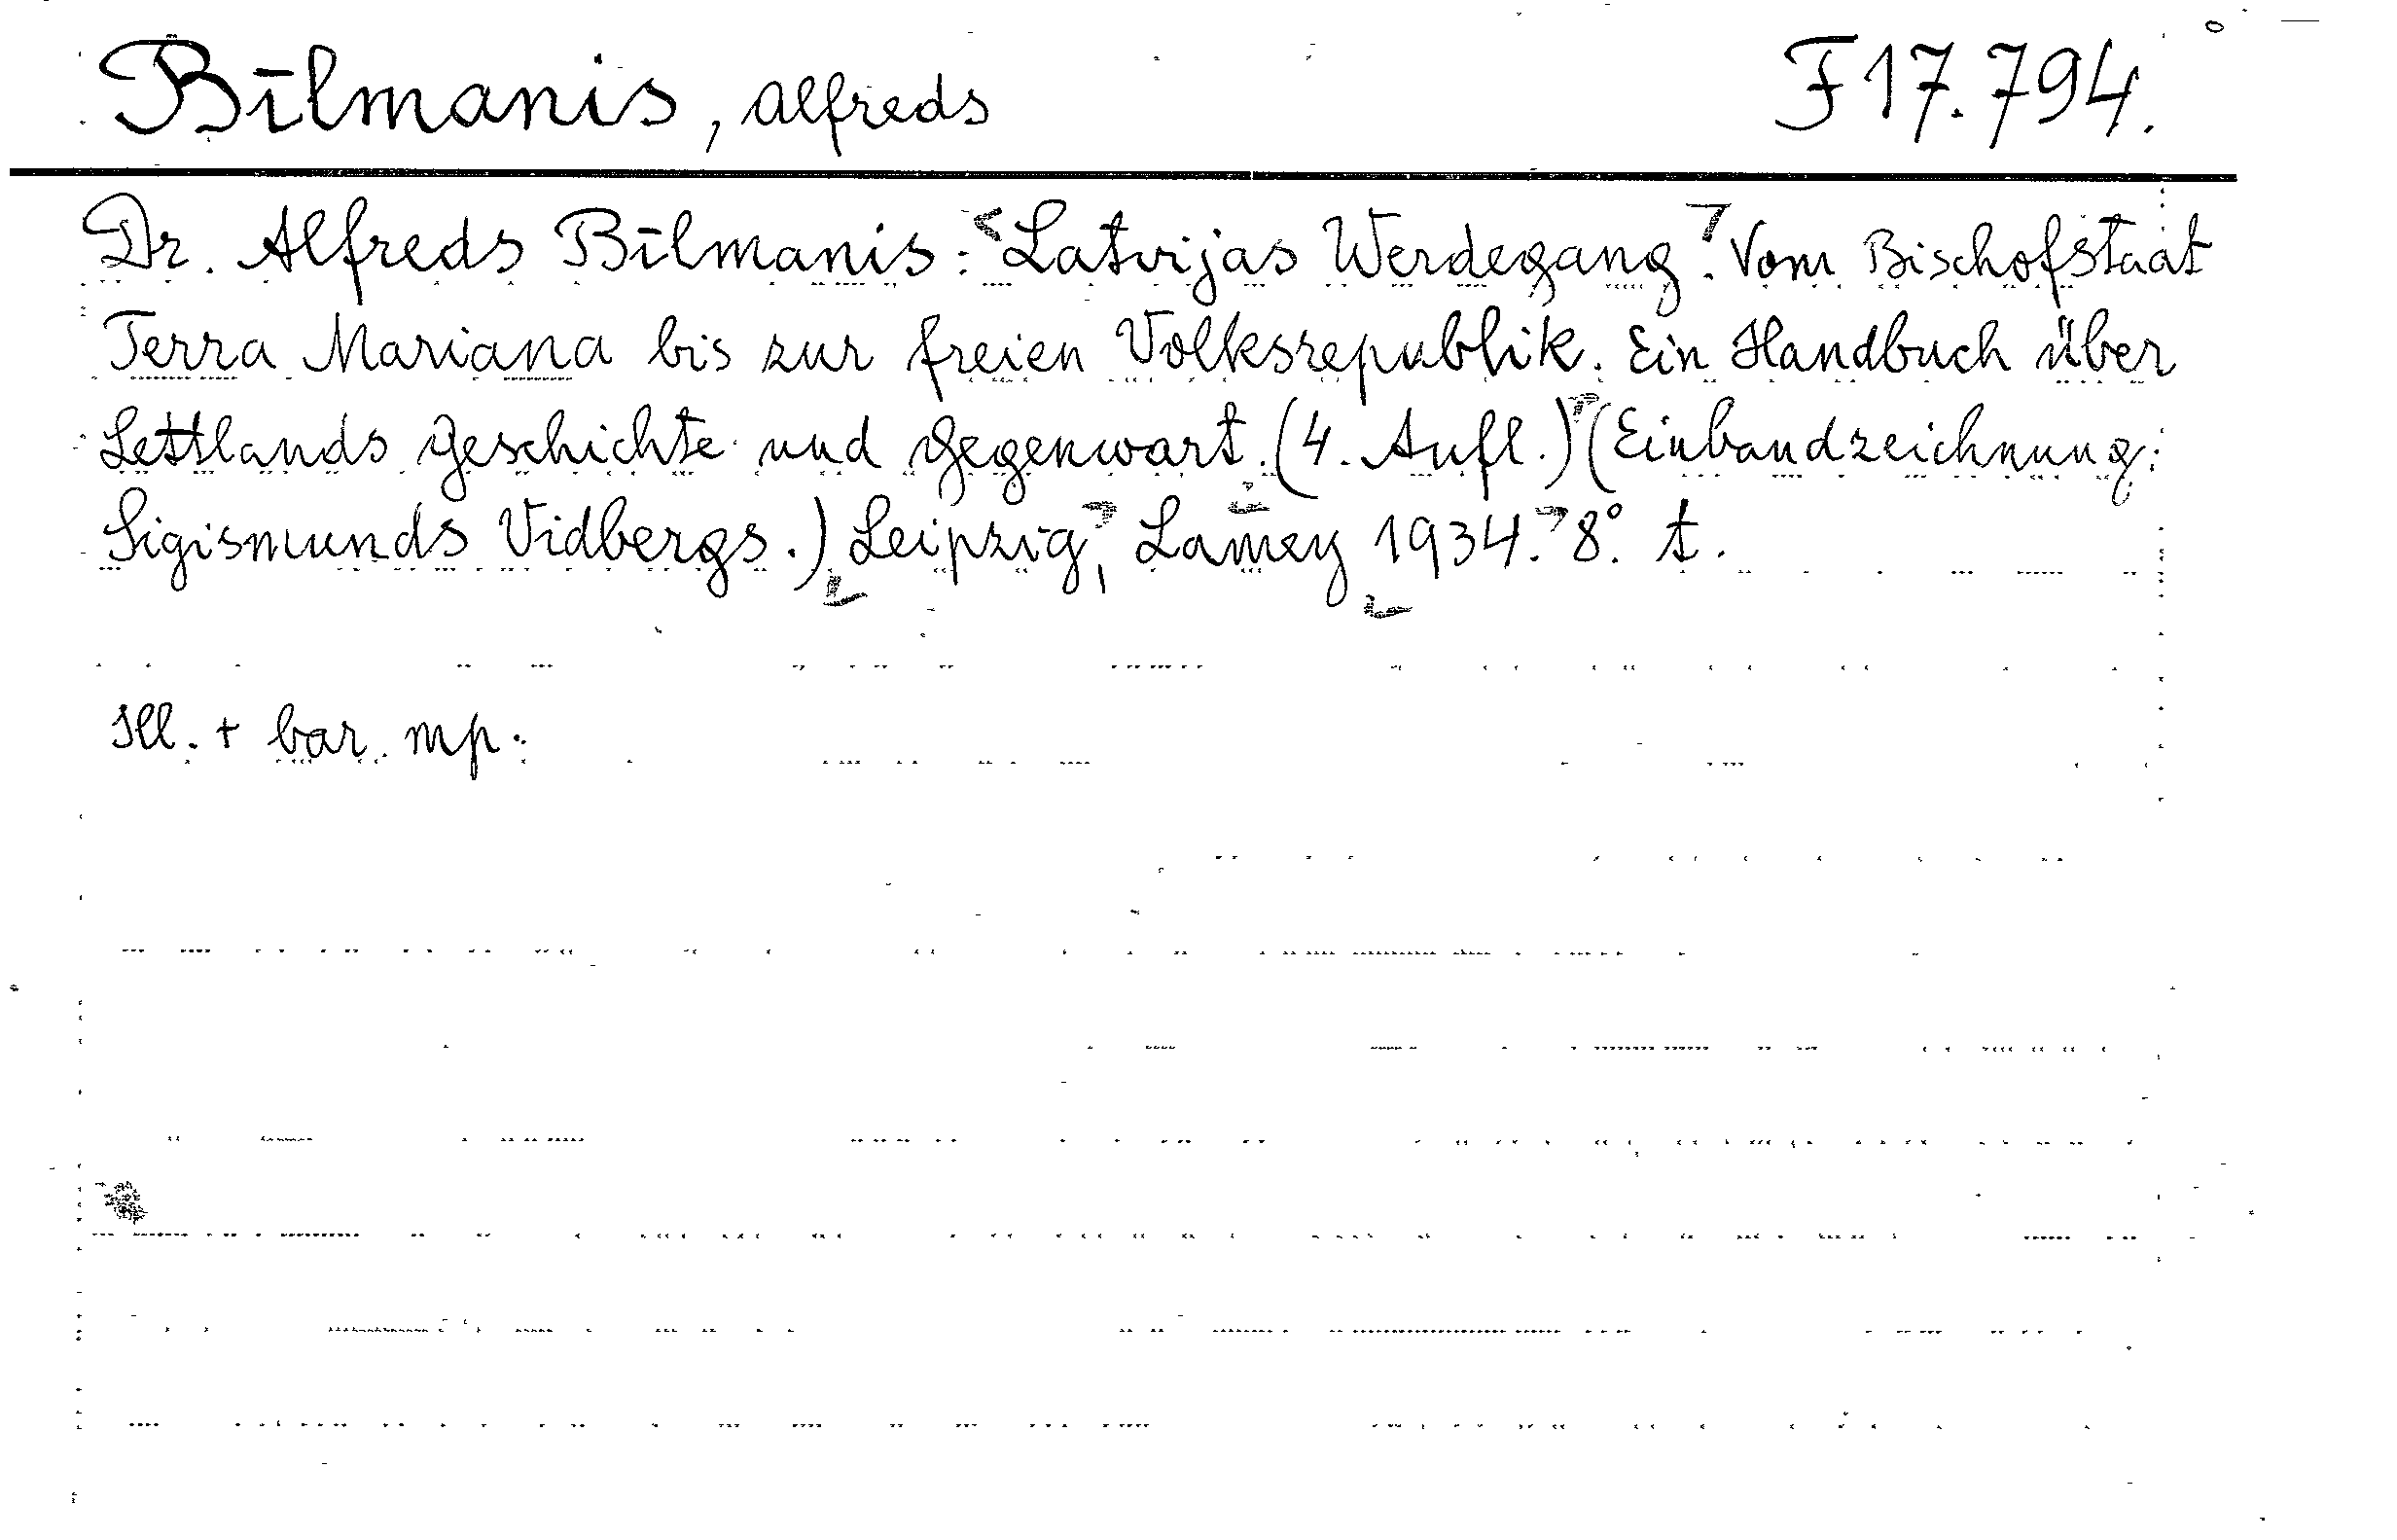 Bīlmanis, Alfreds F 17.794.
Dr. Alfreds Bīlmanis: Latvijas Werdegang. Vom Bischofstaat
Terra Mariana bis zur freien Volksrepublik. Ein Handbuch über
Lettlands Geschichte und Gegenwart. (4. Aufl.) (Einbandzeichnung:
Sigismunds Vidbergs.) Leipzig, Lamey 1934. 8°. t.
Ill. + bar. mp.